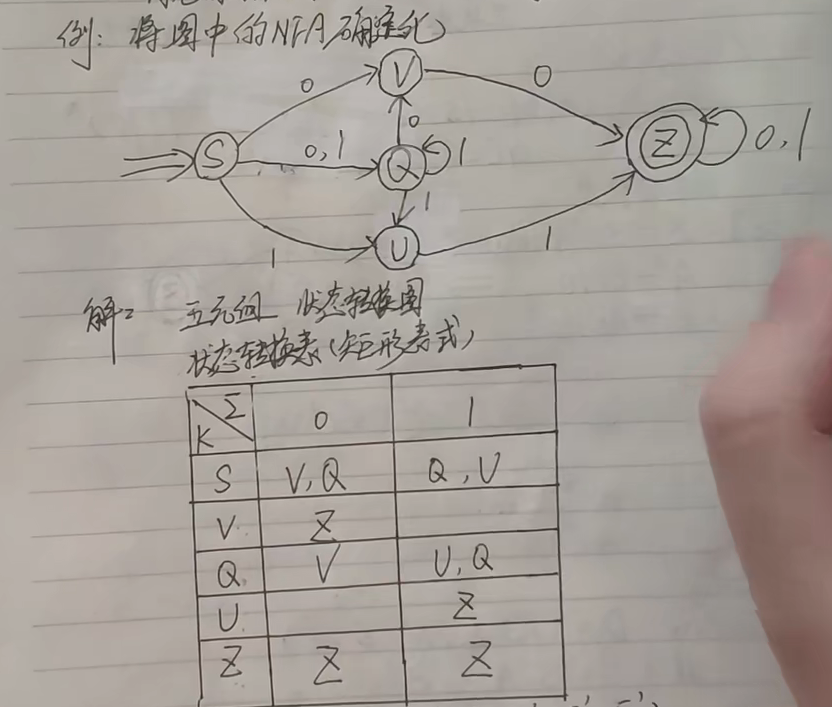 例: 将图中的NFA确定化
V
0
0
0
S
0,1
Q
1
Z
0,1
1
1
U
1
解: 五元组 状态转换图
状态转换表(矩形表式)
K Σ 0 1
S V,Q Q,U
V Z
Q V U,Q
U Z
Z Z Z